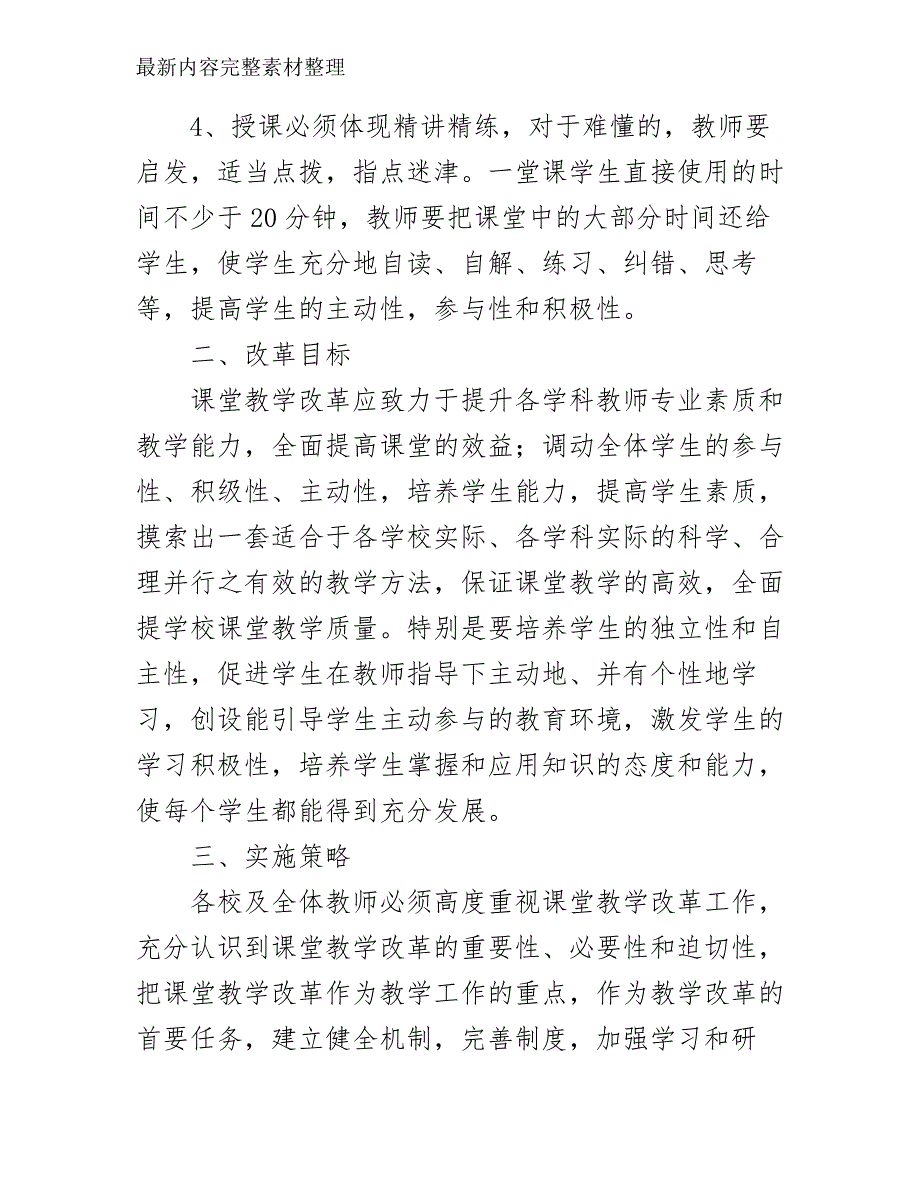 最新内容完整素材整理
4、授课必须体现精讲精练，对于难懂的，教师要
启发，适当点拨，指点迷津。一堂课学生直接使用的时
间不少于20分钟，教师要把课堂中的大部分时间还给
学生，使学生充分地自读、自解、练习、纠错、思考
等，提高学生的主动性，参与性和积极性。
二、改革目标
课堂教学改革应致力于提升各学科教师专业素质和
教学能力，全面提高课堂的效益；调动全体学生的参与
性、积级性、主动性，培养学生能力，提高学生素质，
摸索出一套适合于各学校实际、各学科实际的科学、合
理并行之有效的教学方法，保证课堂教学的高效，全面
提学校课堂教学质量。特别是要培养学生的独立性和自
主性，促进学生在教师指导下主动地、并有个性地学
习，创设能引导学生主动参与的教育环境，激发学生的
学习积极性，培养学生掌握和应用知识的态度和能力，
使每个学生都能得到充分发展。
三、实施策略
各校及全体教师必须高度重视课堂教学改革工作，
充分认识到课堂教学改革的重要性、必要性和迫切性，
把课堂教学改革作为教学工作的重点，作为教学改革的
首要任务，建立健全机制，完善制度，加强学习和研